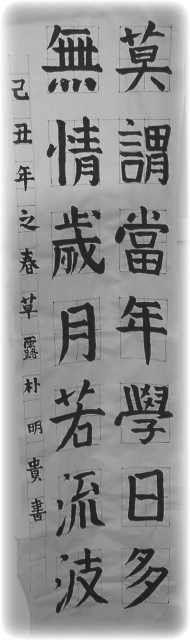 莫謂當年學日多
無情歲月若流波
己丑年之春草露朴明貴書